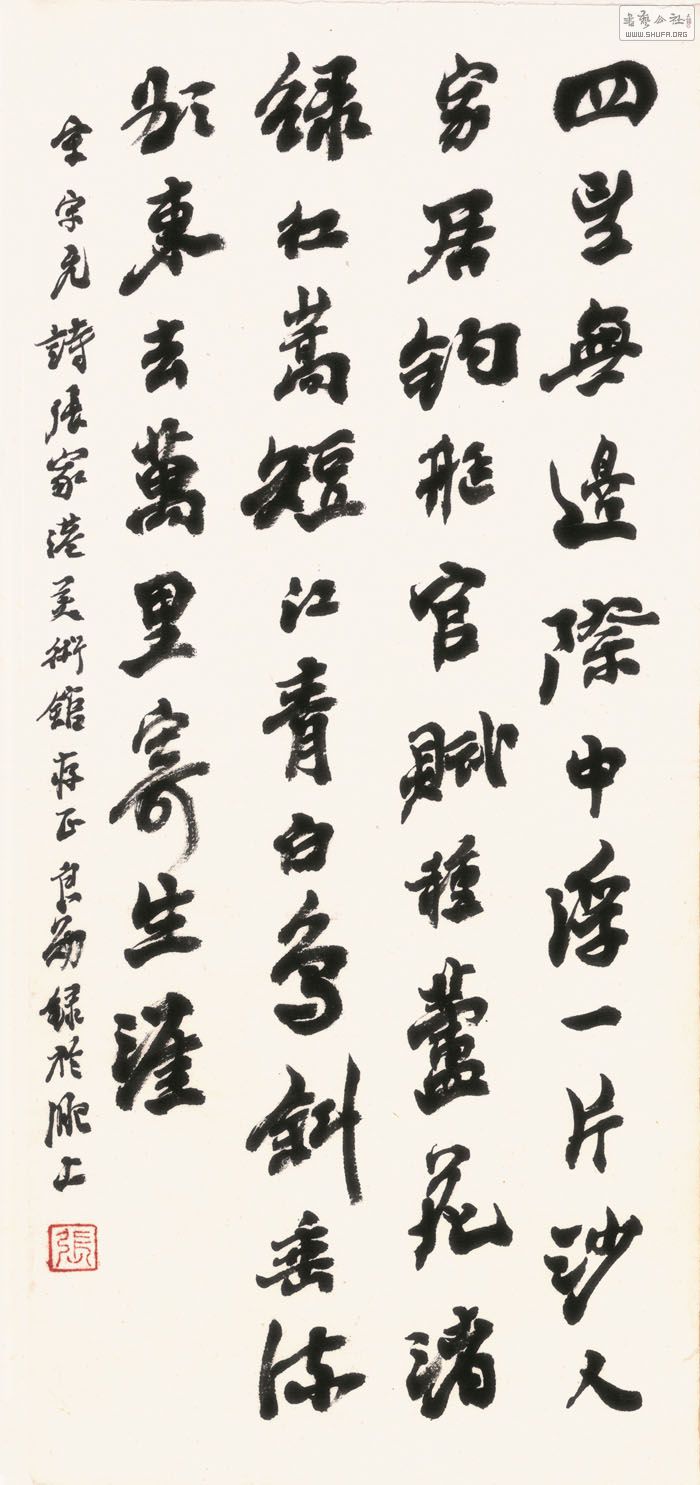 四望無邊際中浮一片沙人
家居釣艇官賦種蘆花渚
緑紅蒿短江青白鳥斜乘流
願東去萬里寄生涯
宋元詩張家港美術館存正良勛録於肥上
張
書藝公社
WWW.SHUFA.ORG